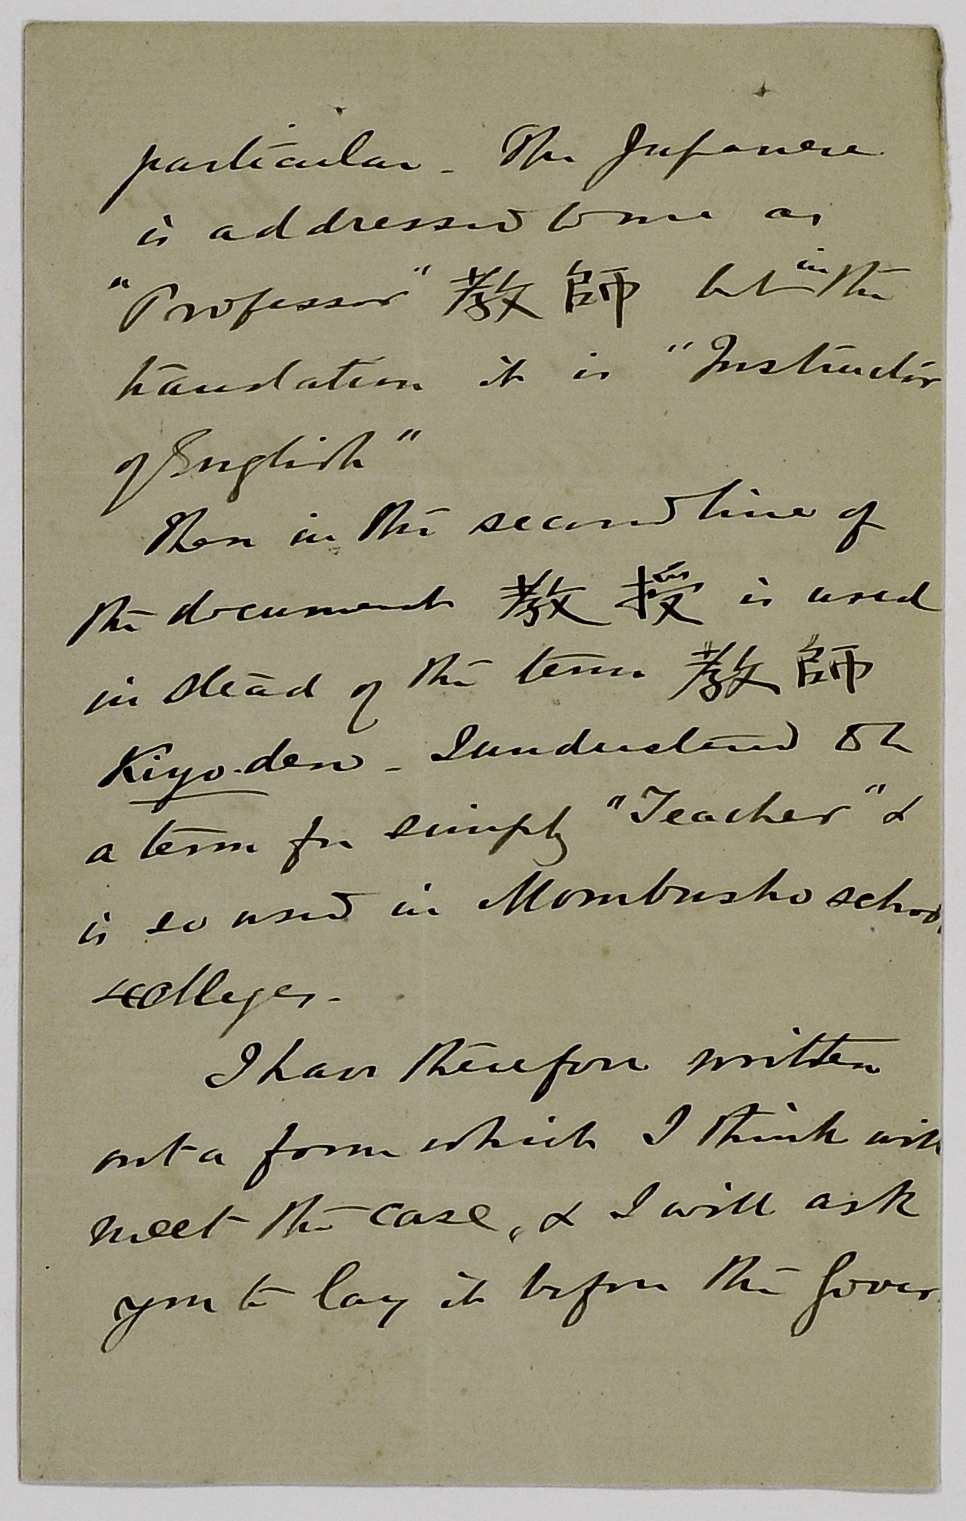 particular - The Japanese
is addressed to me as
"Professor" 教師 but in the
translation it is "Instructor
of English"
Then in the second line of
the document 教授 is used
in stead of the term 教師
Kiyo-den - I understand to be
a term for simply "Teacher" &
is so used in Mombusho school
& colleges -
I have therefore written
out a form which I think will
meet the case, & I will ask
you to lay it before the Gover